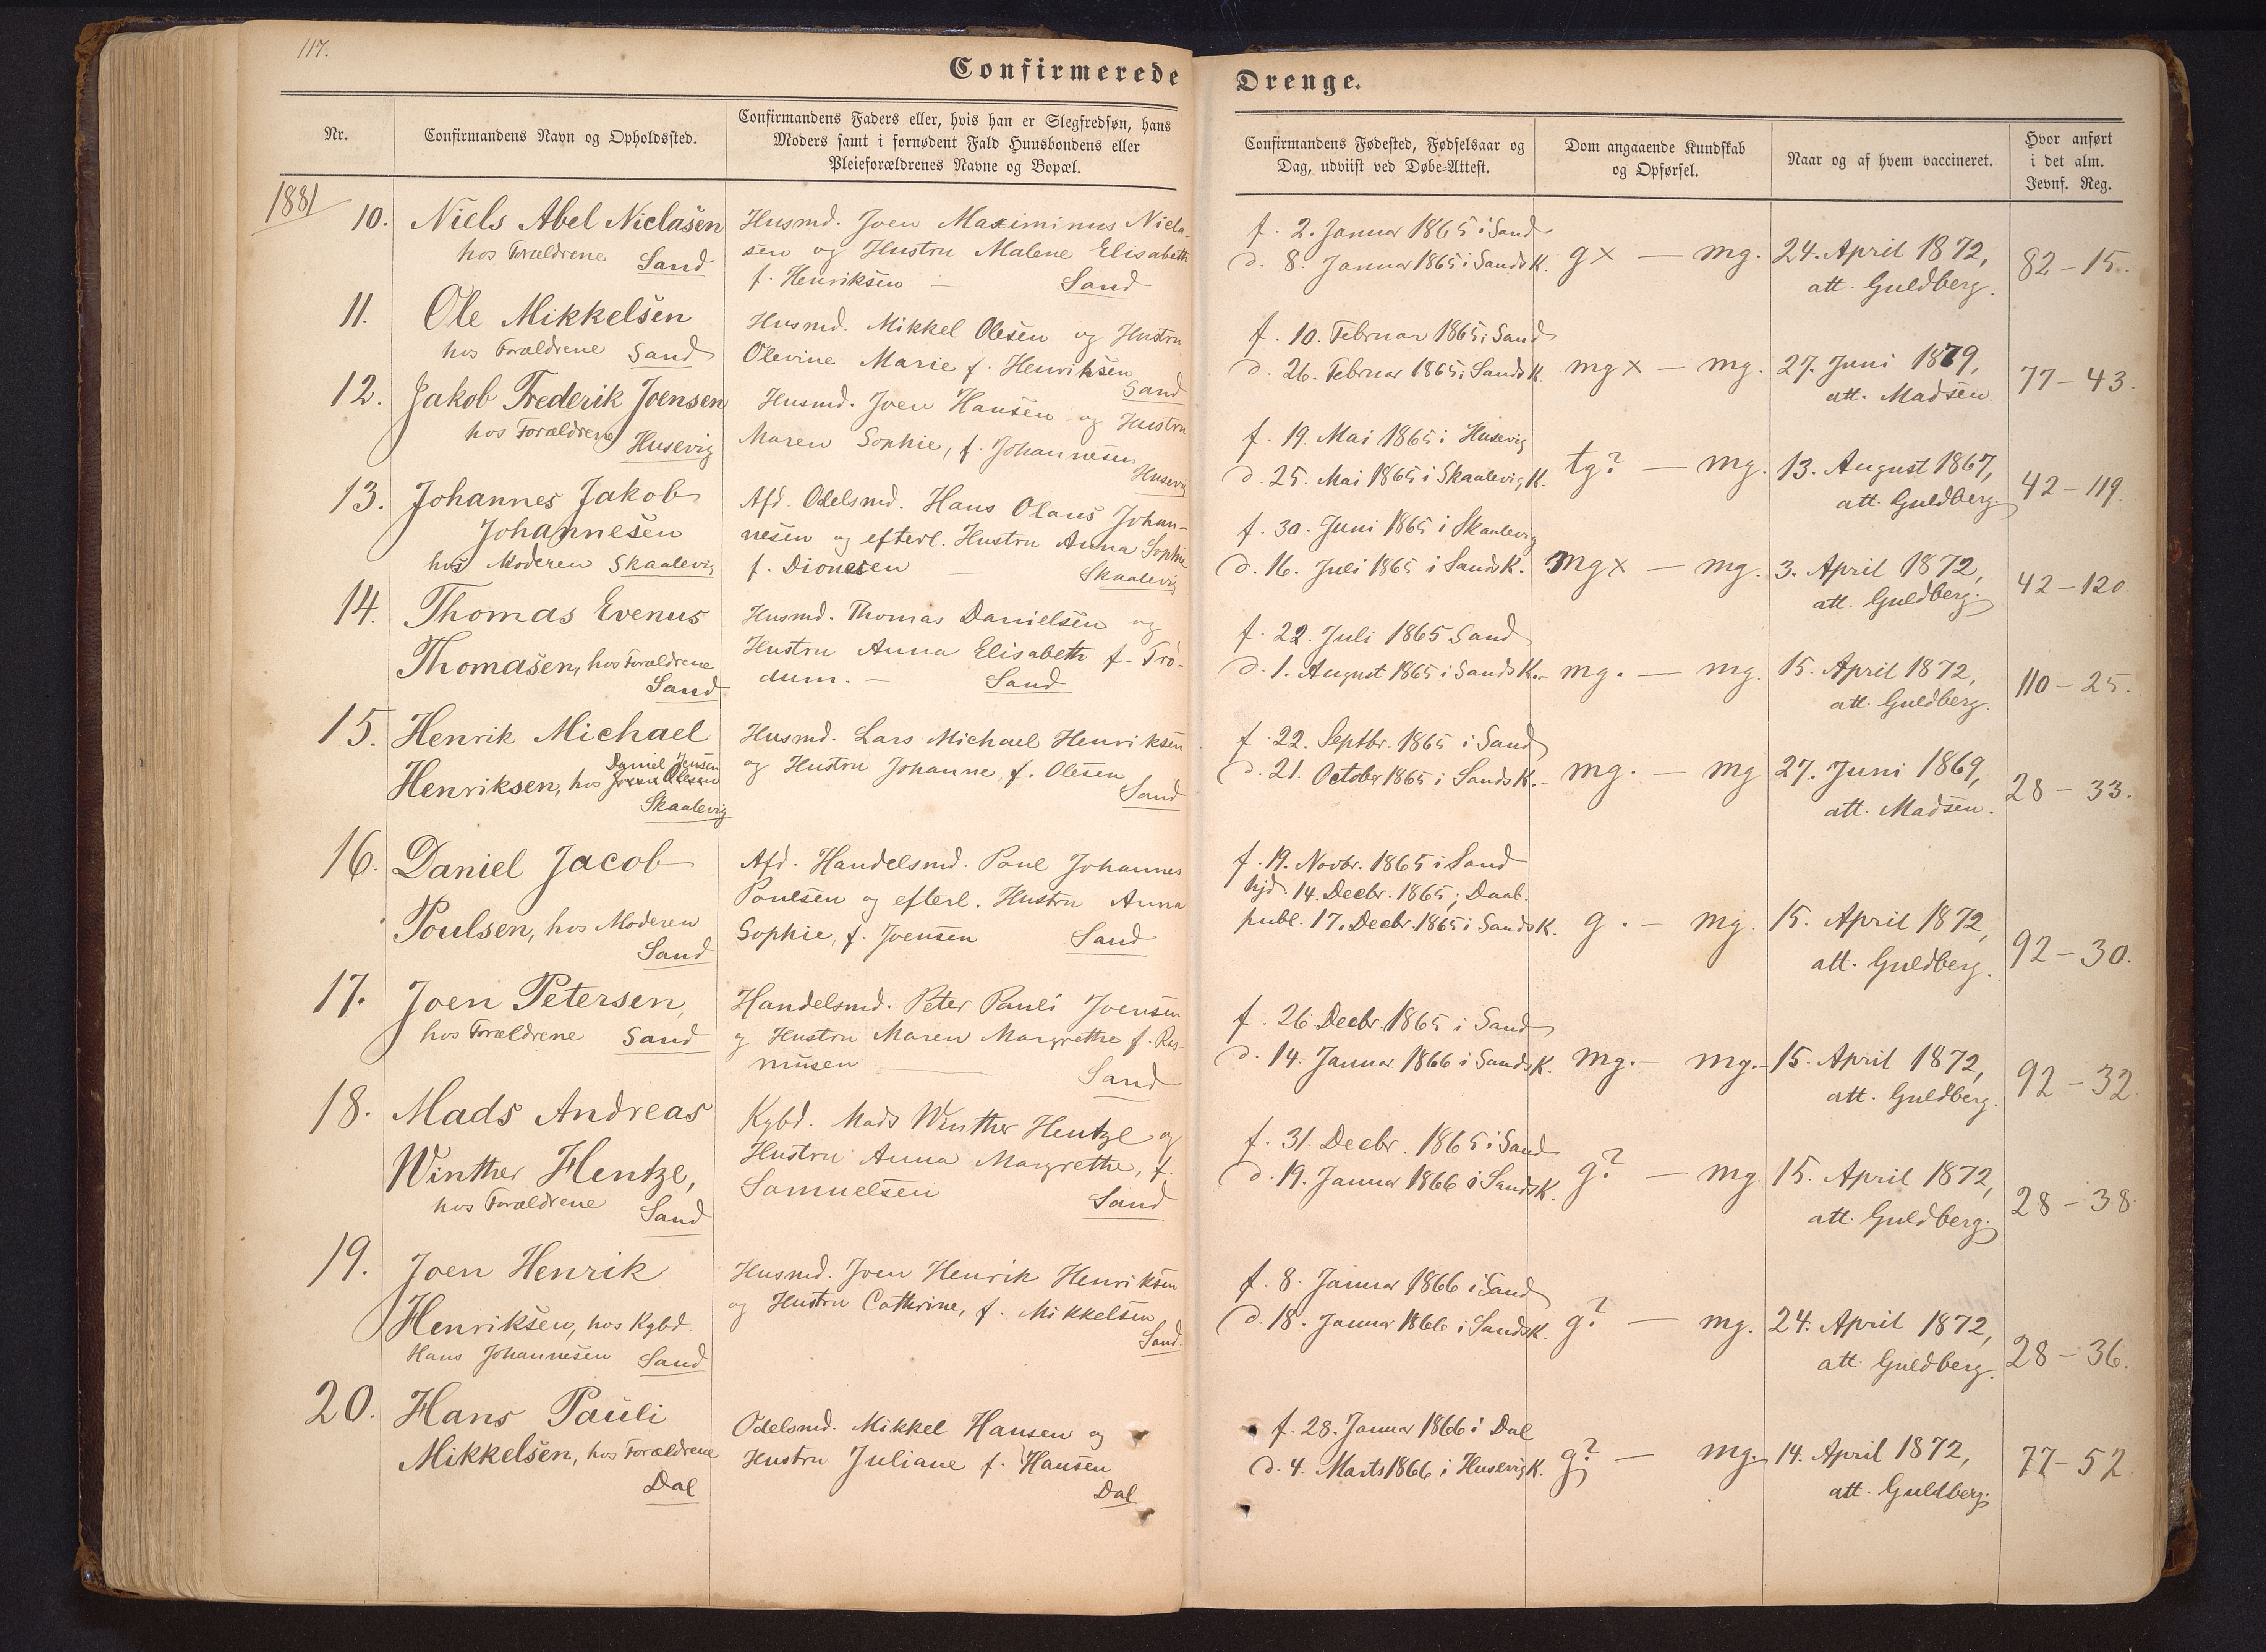 117.
Confirmerede Drenge.
Nr.
Confirmandens Navn og Opholdssted.
Confirmandens Faders eller, hvis han er Slegfredsøn, hans
Moders samt i fornødent Fald Huusbondens eller
Pleieforældrenes Navne og Bopæl.
Confirmandens Fødested, Fødselsaar og
Dag, udviist ved Døbe-Attest.
Dom angaaende Kundskab
og Opførsel.
Naar og af hvem vaccineret.
Hvor anført
i det alm.
Jevnf. Reg.
1881
10.
Niels Abel Niclasen
hos Forældrene Sand
Husmd. Joen Maximinus Nicla-
sen og Hustru Malene Elisabeth
f. Henriksen — Sand
f. 2. Januar 1865 i Sand
d. 8. Januar 1865 i Sands K.
gx — mg.
24. April 1872,
att. Guldberg.
82-15.
11.
Ole Mikkelsen
hos Forældrene Sand
Husmd. Mikkel Olesen og Hustru
Olevine Marie f. Henriksen
Sand
f. 10. Februar 1865 i Sand
d. 26. Februar 1865 i Sands K.
mgx — mg.
27. Juni 1879,
att. Madsen.
77-43.
12.
Jakob Frederik Joensen
hos Forældrene Husevig
Husmd. Joen Hansen og Hustru
Maren Sophie, f. Johannesen
Husevig
f. 19. Mai 1865 i Husevig
d. 25. Mai 1865 i Skaalevig K.
tg? — mg.
13. August 1867,
att. Guldberg.
42-119.
13.
Johannes Jakob
Johannesen
hos Moderen Skaalevig
Afd. Odelsmd. Hans Olaus Johan-
nesen og efterl. Hustru Anna Sophie
f. Dionesen — Skaalevig
f. 30. Juni 1865 i Skaalevig
d. 16. Juli 1865 i Sands K.
mgx — mg.
3. April 1872,
att. Guldberg.
42-120.
14.
Thomas Evenus
Thomasen, hos Forældrene
Sand
Husmd. Thomas Danielsen og
Hustru Anna Elisabeth f. Tro-
dum. — Sand
f. 22. Juli 1865 Sand
d. 1. August 1865 i Sands K.-
mg. — mg.
15. April 1872,
att. Guldberg.
110-25.
15.
Henrik Michael
Daniel Jensen
Henriksen, hos Olesen
Skaalevig
Husmd. Lars Michael Henriksen
og Hustru Johanne, f. Olesen
Sand
f. 22. Septbr. 1865 i Sand
d. 21. October 1865 i Sands K.-
mg. — mg
27. Juni 1869,
att. Madsen.
28-33.
16.
Daniel Jacob
Poulsen, hos Moderen
Sand
Afd. Handelsmd. Poul Johannes
Poulsen og efterl. Hustru Anna
Sophie, f. Joensen Sand
f. 19. Novbr. 1865 i Sand
hjd. 14. Decbr. 1865; Daab.
publ. 17. Decbr. 1865 i Sands K.
g. — mg.
15. April 1872,
att. Guldberg.
92-30.
17.
Joen Petersen,
hos Forældrene Sand
Handelsmd. Peter Pauli Joensen
og Hustru Maren Margrethe f. Ras-
musen — Sand
f. 26 Decbr. 1865 i Sand
d. 14. Januar 1866 i Sands K.
mg. — mg.-
15. April 1872,
att. Guldberg.
92-32.
18.
Mads Andreas
Winther Hentze,
hos Forældrene Sand
Kgbd. Mads Winther Hentze og
Hustru Anna Margrethe, f.
Samuelsen Sand
f. 31. Decbr. 1865 i Sand
d. 19. Januar 1866 i Sands K.
g? — mg.
15. April 1872,
att. Guldberg.
28-38.
19.
Joen Henrik
Henriksen, hos Kgbd.
Hans Johannesen Sand
Husmd. Joen Henrik Henriksen
og Hustru Cathrine, f. Mikkelsen
Sand.
f. 8. Januar 1866 i Sand
d. 18. Januar 1866 i Sands K.
g? — mg.
24. April 1872,
att. Guldberg.
28-36.
20.
Hans Pauli
Mikkelsen, hos Forældrene
Dal
Odelsmd. Mikkel Hansen og
Hustru Juliane f. Hansen
Dal
f. 28. Januar 1866 i Dal
d. 4. Marts 1866 i Husevig K.
g? — mg.
14. April 1872,
att. Guldberg.
77-52.